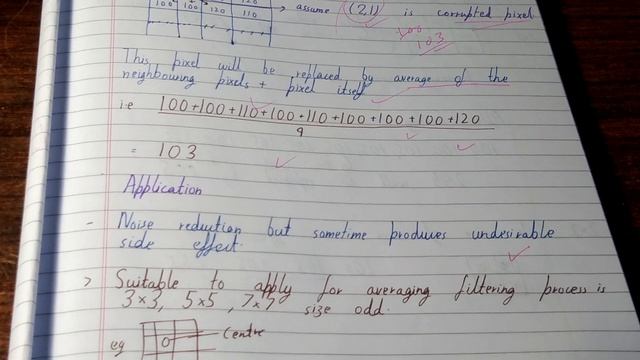 100 100 120 110
→ assume (2,1) is corrupted pixel
100
103
This pixel will be replaced by average of the
neighbouing pixels + pixel itself
i.e 100+100+110+100+110+100+100+100+120
9
= 103
Application
- Noise reduction but sometime produces undesirable
side effect.
> Suitable to apply for averaging filtering process is
3×3, 5×5, 7×7 size odd.
eg 0 Centre